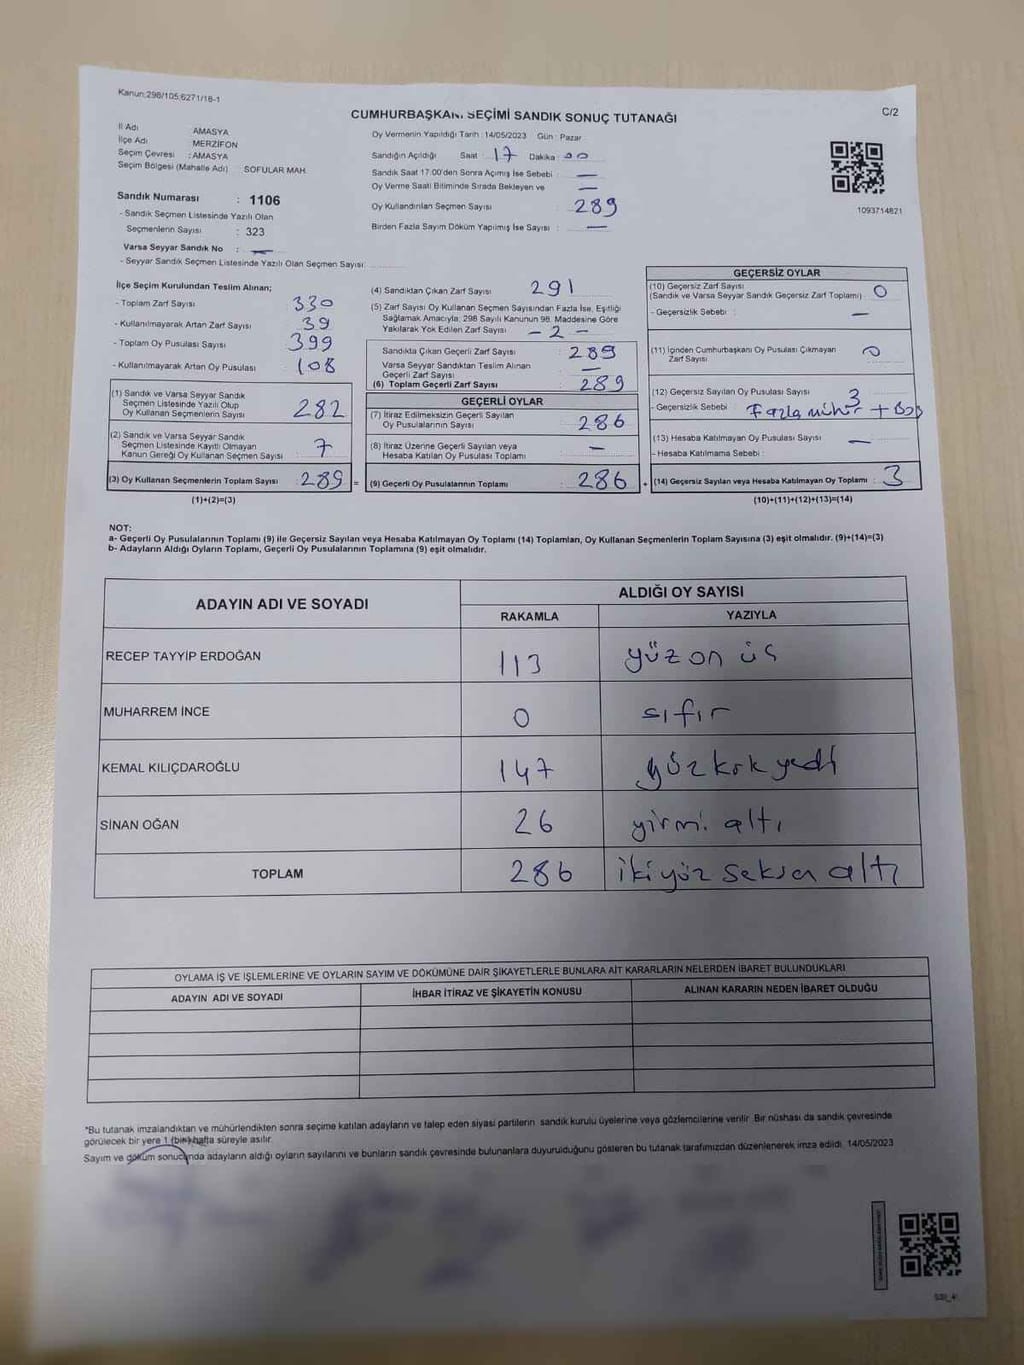 Kanun:298/105;6271/18-1
C/2
CUMHURBAŞKANI SEÇİMİ SANDIK SONUÇ TUTANAĞI
İl Adı AMASYA
İlçe Adı MERZİFON
Seçim Çevresi : AMASYA
Seçim Bölgesi (Mahalle Adı) SOFULAR MAH.
Sandık Numarası : 1106
- Sandık Seçmen Listesinde Yazılı Olan
Seçmenlerin Sayısı : 323
Varsa Seyyar Sandık No : —
- Seyyar Sandık Seçmen Listesinde Yazılı Olan Seçmen Sayısı:
Oy Vermenin Yapıldığı Tarih : 14/05/2023 Gün : Pazar
Sandığın Açıldığı Saat : 17 Dakika : 00
Sandık Saat 17:00'den Sonra Açımış İse Sebebi : —
Oy Verme Saati Bitiminde Sırada Bekleyen ve —
Oy Kullandırılan Seçmen Sayısı 289
Birden Fazla Sayım Döküm Yapılmış İse Sayısı : —
1093714821
İlçe Seçim Kurulundan Teslim Alınan;
- Toplam Zarf Sayısı 330
- Kullanılmayarak Artan Zarf Sayısı : 39
- Toplam Oy Pusulası Sayısı : 399
- Kullanılmayarak Artan Oy Pusulası : 108
(1) Sandık ve Varsa Seyyar Sandık
Seçmen Listesinde Yazılı Olup
Oy Kullanan Seçmenlerin Sayısı : 282
(2) Sandık ve Varsa Seyyar Sandık
Seçmen Listesinde Kayıtlı Olmayan
Kanun Gereği Oy Kullanan Seçmen Sayısı : 7
(3) Oy Kullanan Seçmenlerin Toplam Sayısı : 289 =
(1)+(2)=(3)
(4) Sandıktan Çıkan Zarf Sayısı : 291
(5) Zarf Sayısı Oy Kullanan Seçmen Sayısından Fazla İse, Eşitliği
Sağlamak Amacıyla; 298 Sayılı Kanunun 98. Maddesine Göre
Yakılarak Yok Edilen Zarf Sayısı - 2 -
Sandıkta Çıkan Geçerli Zarf Sayısı : 289
Varsa Seyyar Sandıktan Teslim Alınan —
Geçerli Zarf Sayısı
(6) Toplam Geçerli Zarf Sayısı : 289
GEÇERLİ OYLAR
(7) İtiraz Edilmeksizin Geçerli Sayılan
Oy Pusulalarının Sayısı : 286
(8) İtiraz Üzerine Geçerli Sayılan veya
Hesaba Katılan Oy Pusulası Toplamı : —
(9) Geçerli Oy Pusulalarının Toplamı : 286 +
GEÇERSİZ OYLAR
(10) Geçersiz Zarf Sayısı
(Sandık ve Varsa Seyyar Sandık Geçersiz Zarf Toplamı) : 0
- Geçersizlik Sebebi : —
(11) İçinden Cumhurbaşkanı Oy Pusulası Çıkmayan
Zarf Sayısı : 0
(12) Geçersiz Sayılan Oy Pusulası Sayısı : 3
- Geçersizlik Sebebi : Fazla mühür + Boş
(13) Hesaba Katılmayan Oy Pusulası Sayısı : —
- Hesaba Katılmama Sebebi :
(14) Geçersiz Sayılan veya Hesaba Katılmayan Oy Toplamı : 3
(10)+(11)+(12)+(13)=(14)
NOT:
a- Geçerli Oy Pusulalarının Toplamı (9) ile Geçersiz Sayılan veya Hesaba Katılmayan Oy Toplamı (14) Toplamları, Oy Kullanan Seçmenlerin Toplam Sayısına (3) eşit olmalıdır. (9)+(14)=(3)
b- Adayların Aldığı Oyların Toplamı, Geçerli Oy Pusulalarının Toplamına (9) eşit olmalıdır.
ADAYIN ADI VE SOYADI
ALDIĞI OY SAYISI
RAKAMLA YAZIYLA
RECEP TAYYİP ERDOĞAN 113 yüz on üç
MUHARREM İNCE 0 sıfır
KEMAL KILIÇDAROĞLU 147 yüz kırk yedi
SİNAN OĞAN 26 yirmi altı
TOPLAM 286 iki yüz seksen altı
OYLAMA İŞ VE İŞLEMLERİNE VE OYLARIN SAYIM VE DÖKÜMÜNE DAİR ŞİKAYETLERLE BUNLARA AİT KARARLARIN NELERDEN İBARET BULUNDUKLARI
ADAYIN ADI VE SOYADI İHBAR İTİRAZ VE ŞİKAYETİN KONUSU ALINAN KARARIN NEDEN İBARET OLDUĞU
*Bu tutanak imzalandıktan ve mühürlendikten sonra seçime katılan adayların ve talep eden siyasi partilerin sandık kurulu üyelerine veya gözlemcilerine verilir. Bir nüshası da sandık çevresinde
görülecek bir yere 1 (bir) hafta süreyle asılır.
Sayım ve döküm sonucunda adayların aldığı oyların sayılarını ve bunların sandık çevresinde bulunanlara duyurulduğunu gösteren bu tutanak tarafımızdan düzenlenerek imza edildi. 14/05/2023